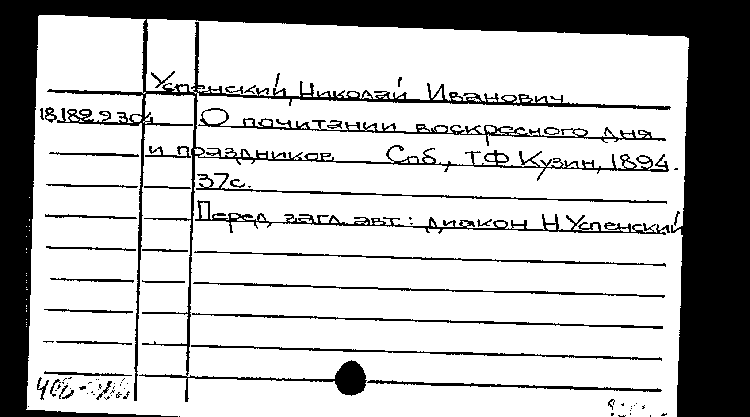 Успенский, Николай Иванович
18.182.9.304 О почитании воскресного дня
и праздников Спб., Т.Ф. Кузин, 1894.
37с.
Перед загл. авт.: диакон Н. Успенский